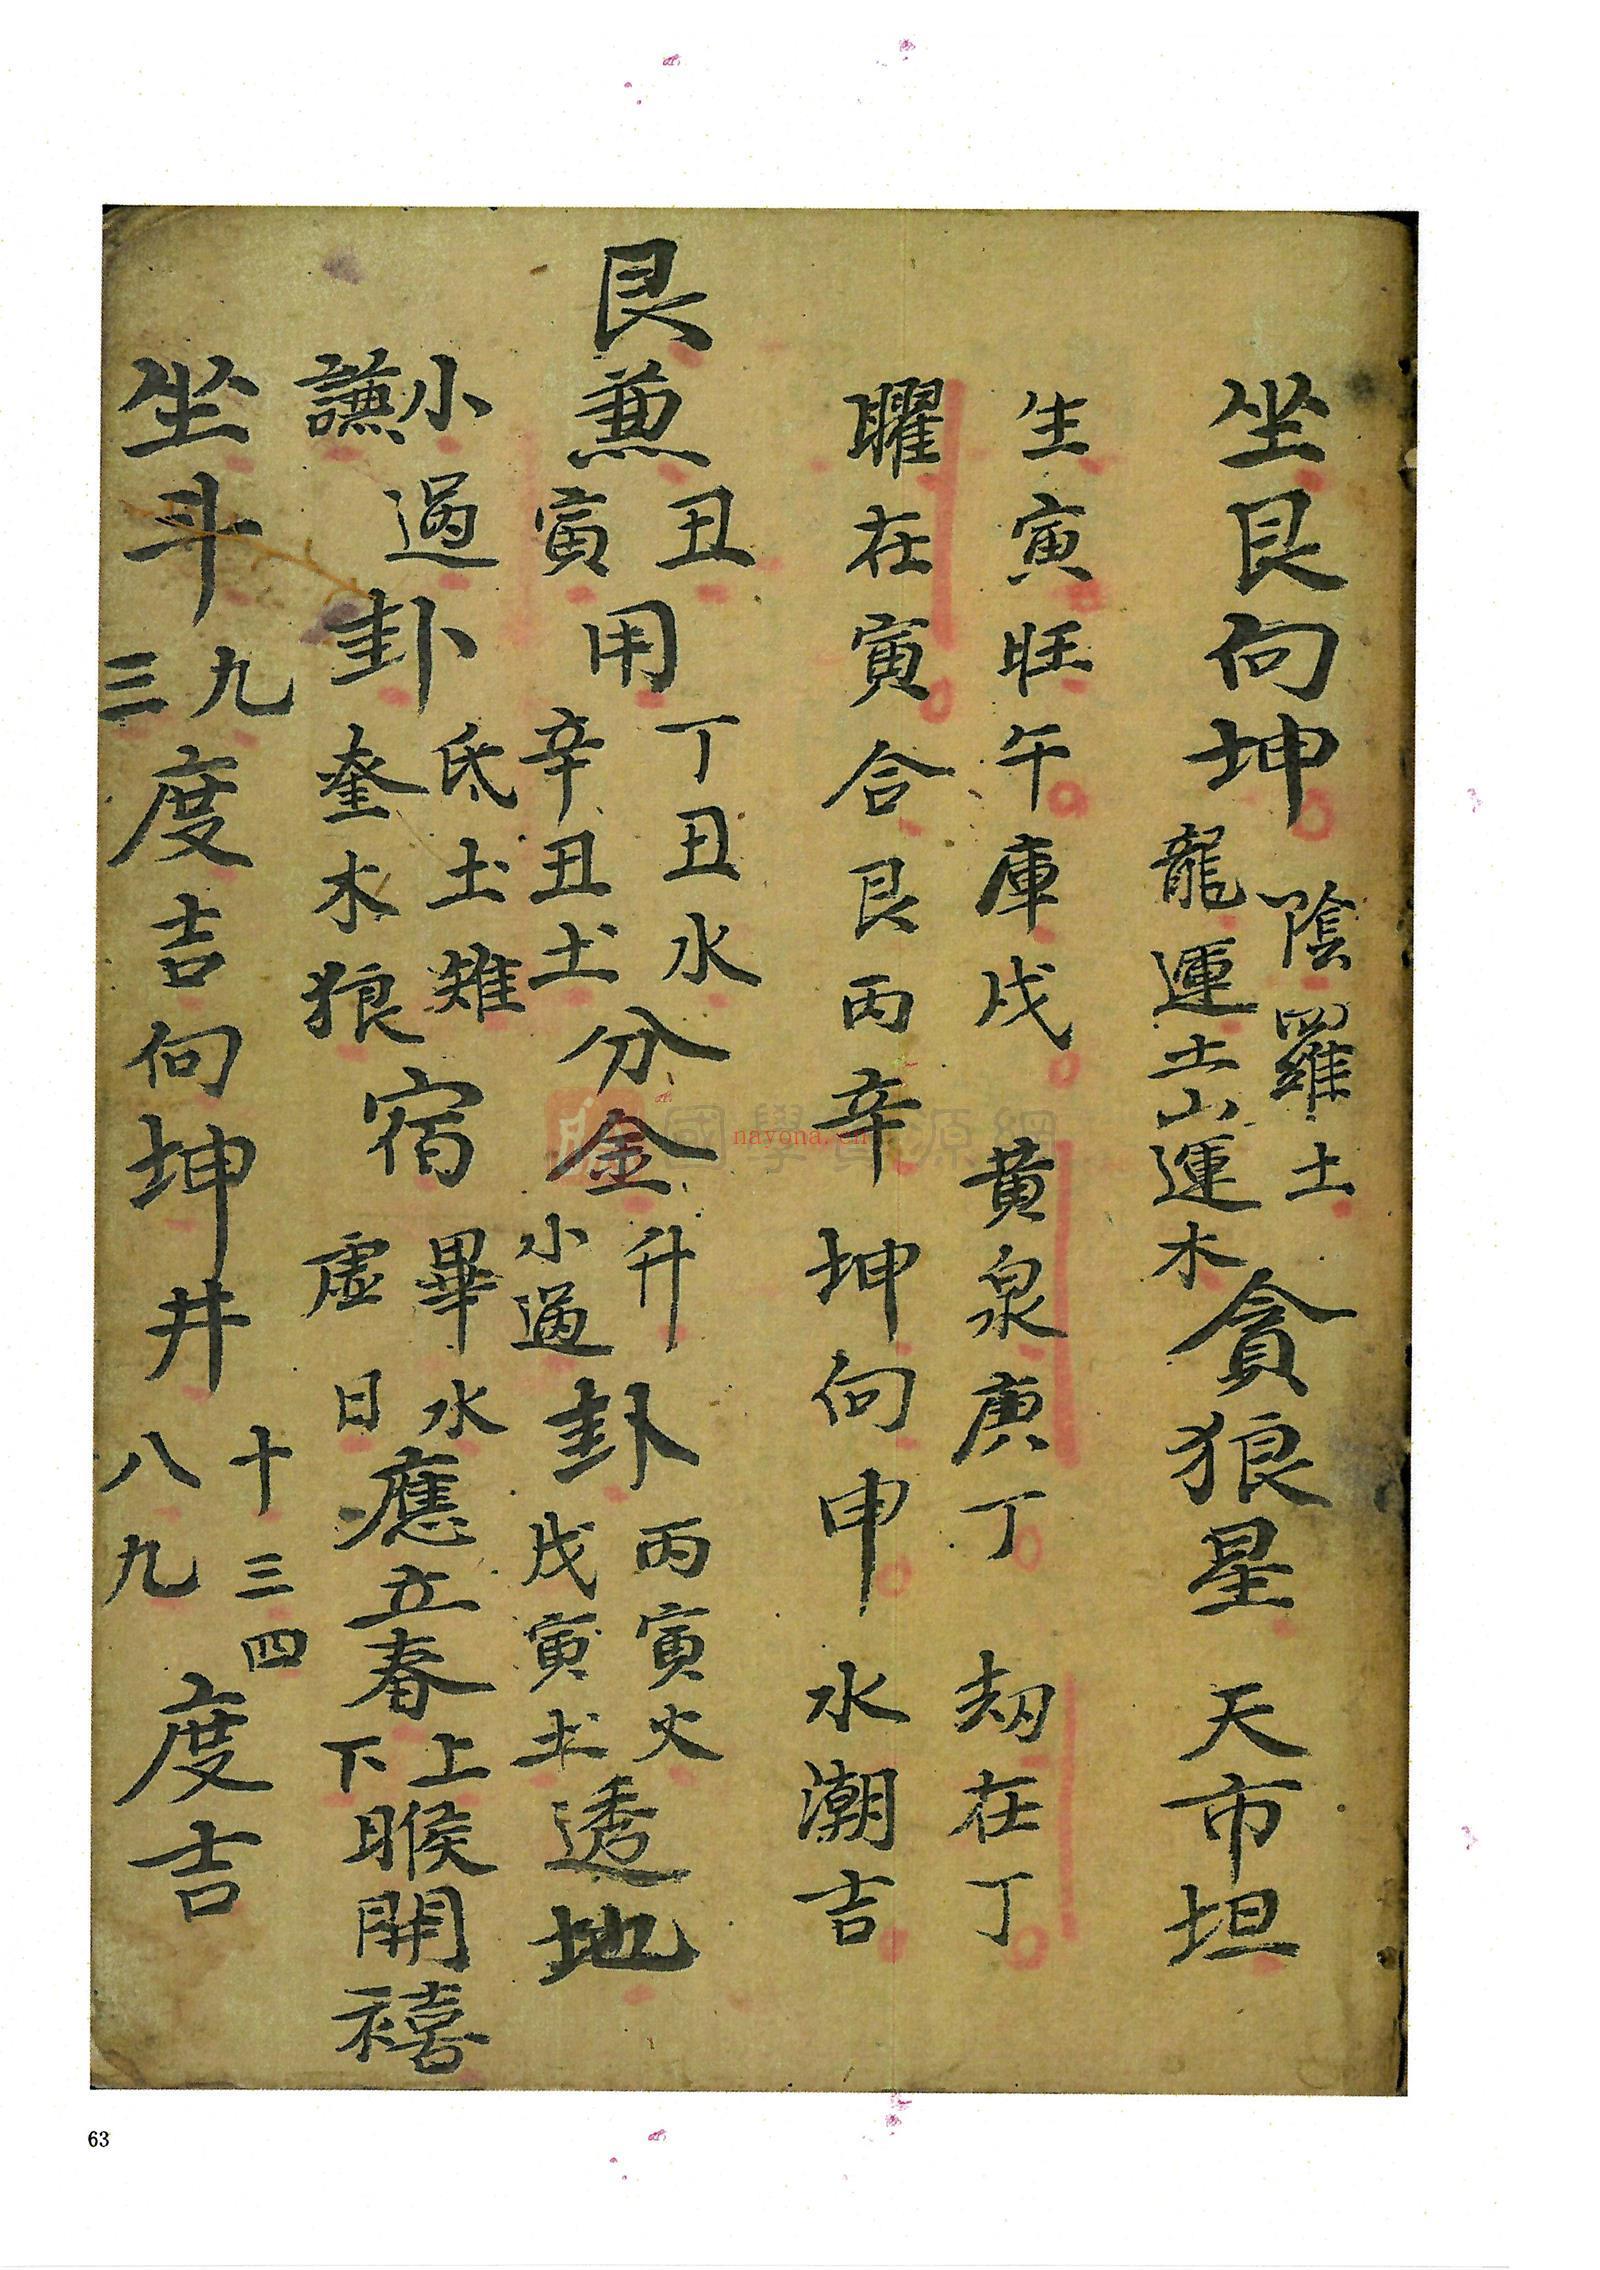 坐艮向坤 陰羅土 龍運土山運木 貪狼星 天市垣
生寅旺午庫戌 黄泉庚丁 劫在丁
曜在寅 合艮丙辛 坤向申 水潮吉
艮兼丑寅用 丁丑水 辛丑土 分金 升 小過 卦 丙寅火 戊寅土 透地
小過 謙 卦 氐土雉 奎木狼 宿 畢水 虚日 應立春 上下 睺 開禧
坐斗 九三 度吉向坤井 十三四 八九 度吉
國學資源網
nayona.cn
63